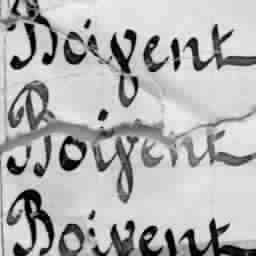 Boiyent
Boiyent
Boiyent